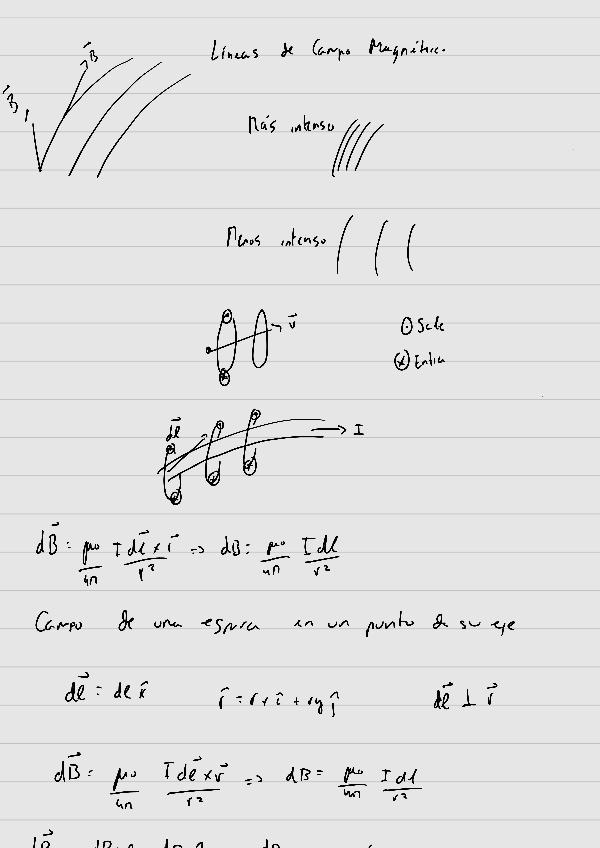 Líneas de Campo Magnético.
B⃗
B⃗₁
Más intenso
Menos intenso
v⃗
⊙ Sale
⊗ Entra
dl⃗
I
dB⃗ = μ₀/4π I dl⃗ × r⃗/r² => dB = μ₀/4π I dl/r²
Campo de una espira en un punto de su eje
dl⃗ = dl k̂
r̂ = rx î + ry ĵ
dl⃗ ⊥ r⃗
dB⃗ = μ₀/4π I dl⃗ × r⃗/r² => dB = μ₀/4π I dl/r²